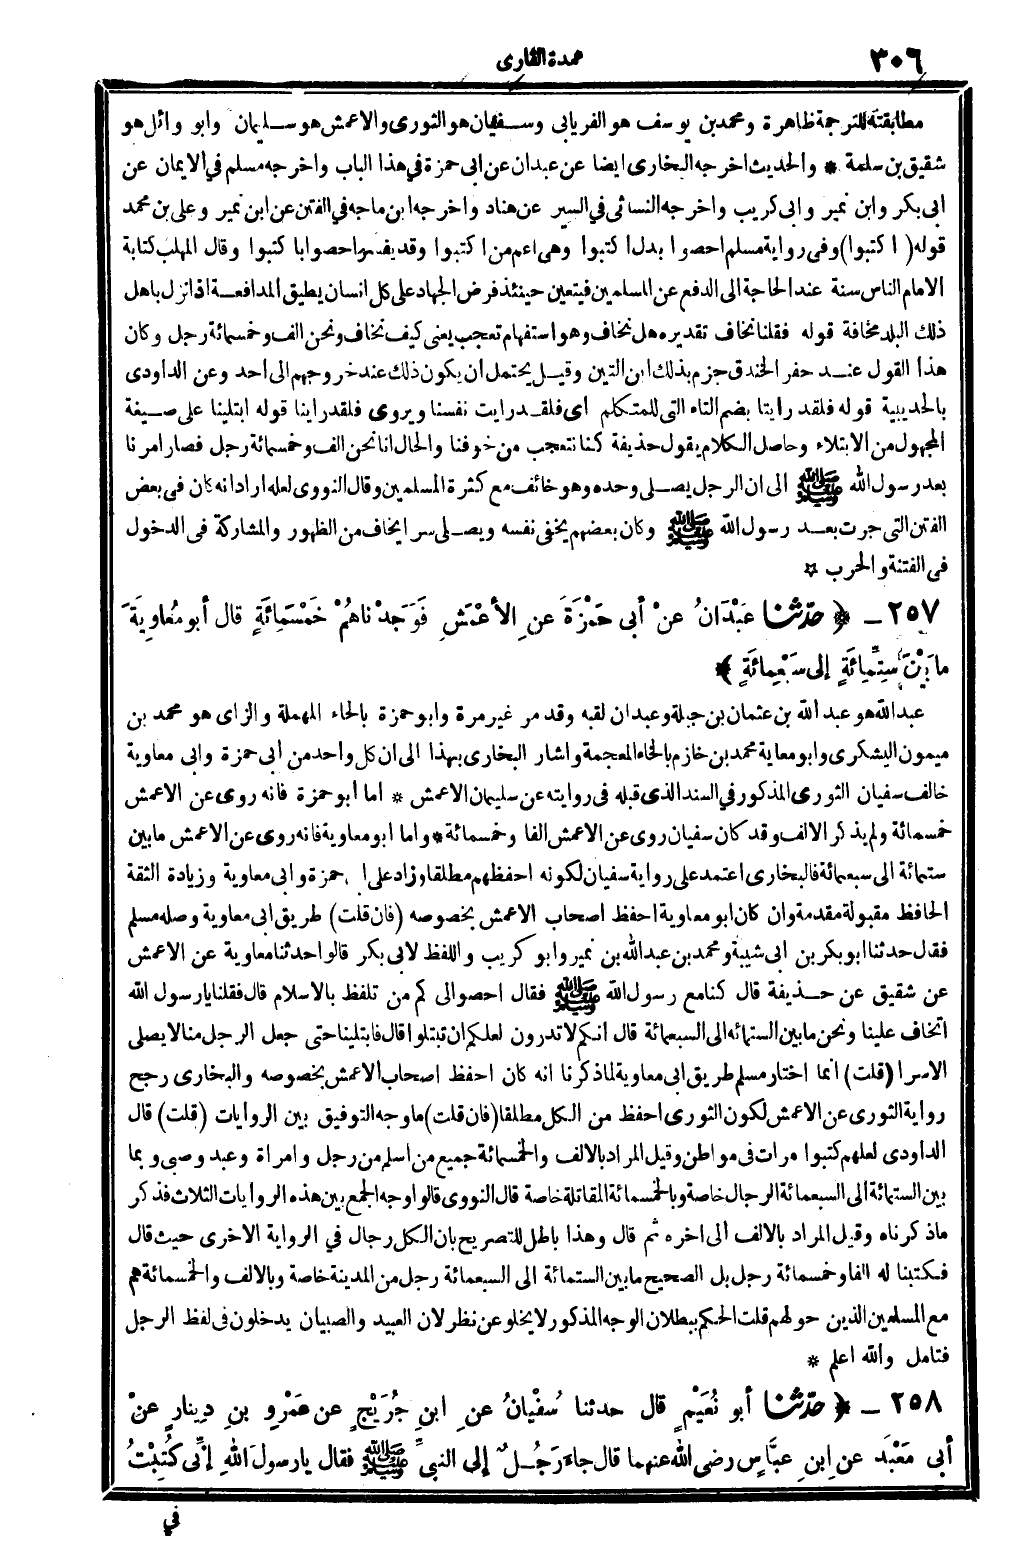 ٣٠٦
عمدة القارى
مطابقته للترجمة ظاهرة ومحمد بن يوسف هو الفريابى وسفيان هو الثورى والاعمش هو سليمان وابو وائل هو
شقيق بن سلمة * والحديث اخرجه البخارى ايضا عن عبدان عن ابى حمزة فى هذا الباب واخرجه مسلم فى الايمان عن
ابى بكر وابن نمير وابى كريب واخرجه النسائى فى السير عن هناد واخرجه ابن ماجه فى الفتن عن ابن نمير وعلى بن محمد
قوله ( اكتبوا) وفى رواية مسلم احصوا بدل اكتبوا وهى اعم من اكتبوا وقد يفسر احصوا باكتبوا وقال المهلب كتابة
الامام الناس سنة عند الحاجة الى الدفع عن المسلمين فيتعين حينئذ فرض الجهاد على كل انسان يطيق المدافعة اذا نزل باهل
ذلك البلد مخافة قوله فقلنا نخاف تقديره هل نخاف وهو استفهام تعجب يعنى كيف نخاف ونحن الف وخمسمائة رجل وكان
هذا القول عند حفر الخندق جزم بذلك ابن التين وقيل يحتمل أن يكون ذلك عند خروجهم الى احد وعن الداودى
بالحديبية قوله فلقد رايتا بضم التاء التى للمتكلم اى فلقد رايت نفسنا ويروى فلقد راينا قوله ابتلينا على صيغة
المجهول من الابتلاء وحاصل الكلام يقول حذيفة كنا نتعجب من خوفنا والحال انا نحن الف وخمسمائة رجل فصار امرنا
بعد رسول الله ﷺ الى ان الرجل يصلى وحده وهو خائف مع كثرة المسلمين وقال النووى لعله اراد انه كان فى بعض
الفتن التى جرت بعد رسول الله ﷺ وكان بعضهم يخفى نفسه ويصلى سرا يخاف من الظهور والمشاركة فى الدخول
فى الفتنة والحرب *
٢٥٧ – ﴿ حدّثنا عَبْدَانُ عنْ أبى حَمْزَةَ عنِ الأعْمَشِ فَوَجَدْناهُمْ خَمْسَمِائَةٍ قال أبو مُعاوِيَةَ
ما بَيْنَ سِتِّمِائَةٍ إلى سَبْعِمِائَةٍ ﴾
عبد الله هو عبد الله بن عثمان بن جبلة وعبدان لقبه وقد مر غير مرة وابو حمزة بالحاء المهملة والزاى هو محمد بن
ميمون اليشكرى وابو معاية محمد بن خازم بالخاء المعجمة واشار البخارى بهذا الى ان كل واحد من أبى حمزة وابى معاوية
خالف سفيان الثورى المذكور فى السند الذى قبله فى روايته عن سليمان الاعمش * اما أبو حمزة فانه روى عن الاعمش
خمسمائة ولم يذكر الالف وقد كان سفيان روى عن الاعمش الفا وخمسمائة * واما ابو معاوية فانه روى عن الاعمش مابين
ستمائة الى سبعمائة فالبخارى اعتمد على رواية سفيان لكونه احفظهم مطلقا وزاد على ابى حمزة وابى معاوية وزيادة الثقة
الحافظ مقبولة مقدمة وان كان ابو معاوية احفظ اصحاب الاعمش بخصوصه (فان قلت) طريق ابى معاوية وصله مسلم
فقال حدثنا ابو بكر بن ابى شيبة ومحمد بن عبدالله بن نمير وابو كريب واللفظ لابى بكر قالوا حدثنا معاوية عن الاعمش
عن شقيق عن حذيفة قال كنا مع رسول الله ﷺ فقال احصوا لى كم من تلفظ بالاسلام قال فقلنا يارسول الله
اتخاف علينا ونحن مابين الستمائه الى السبعمائة قال انكم لا تدرون لعلكم ان تبتلوا قال فابتلينا حتى جعل الرجل منا لا يصلى
الا سرا (قلت) انما اختار مسلم طريق ابى معاوية لما ذكرنا انه كان احفظ اصحاب الاعمش بخصوصه والبخارى رجح
رواية الثورى عن الاعمش لكون الثورى احفظ من الكل مطلقا (فان قلت) ما وجه التوفيق بين الروايات (قلت) قال
الداودى لعلهم كتبوا مرات فى مواطن وقيل المراد بالالف والخمسمائة جميع من اسلم من رجل وامراة وعبد وصبى وبما
بين الستمائة الى السبعمائة الرجال خاصة وبالخمسمائة المقاتلة خاصة قال النووى قالوا وجه الجمع بين هذه الروايات الثلاث فذكر
ماذكرناه وقيل المراد بالالف الى اخره ثم قال وهذا باطل للتصريح بان الكل رجال في الرواية الاخرى حيث قال
فكتبنا له الفا وخمسمائة رجل بل الصحيح مابين الستمائة الى السبعمائة رجل من المدينة خاصة وبالالف والخمسمائة هم
مع المسلمين الذين حولهم قلت الحكم ببطلان الوجه المذكور لا يخلو عن نظر لان العبيد والصبيان يدخلون فى لفظ الرجل
فتامل والله اعلم *
٢٥٨ – ﴿ حدّثنا أبو نُعَيْمٍ قال حدثنا سُفْيانُ عنِ ابنِ جُرَيْجٍ عن عَمْرِو بنِ دِينارٍ عنْ
أبى مَعْبَدٍ عن ابنِ عبَّاسٍ رضى الله عنهما قال جاءَ رَجُلٌ إلى النبىِّ ﷺ فقال يارسولَ اللهِ إنِّى كُتِبْتُ
في